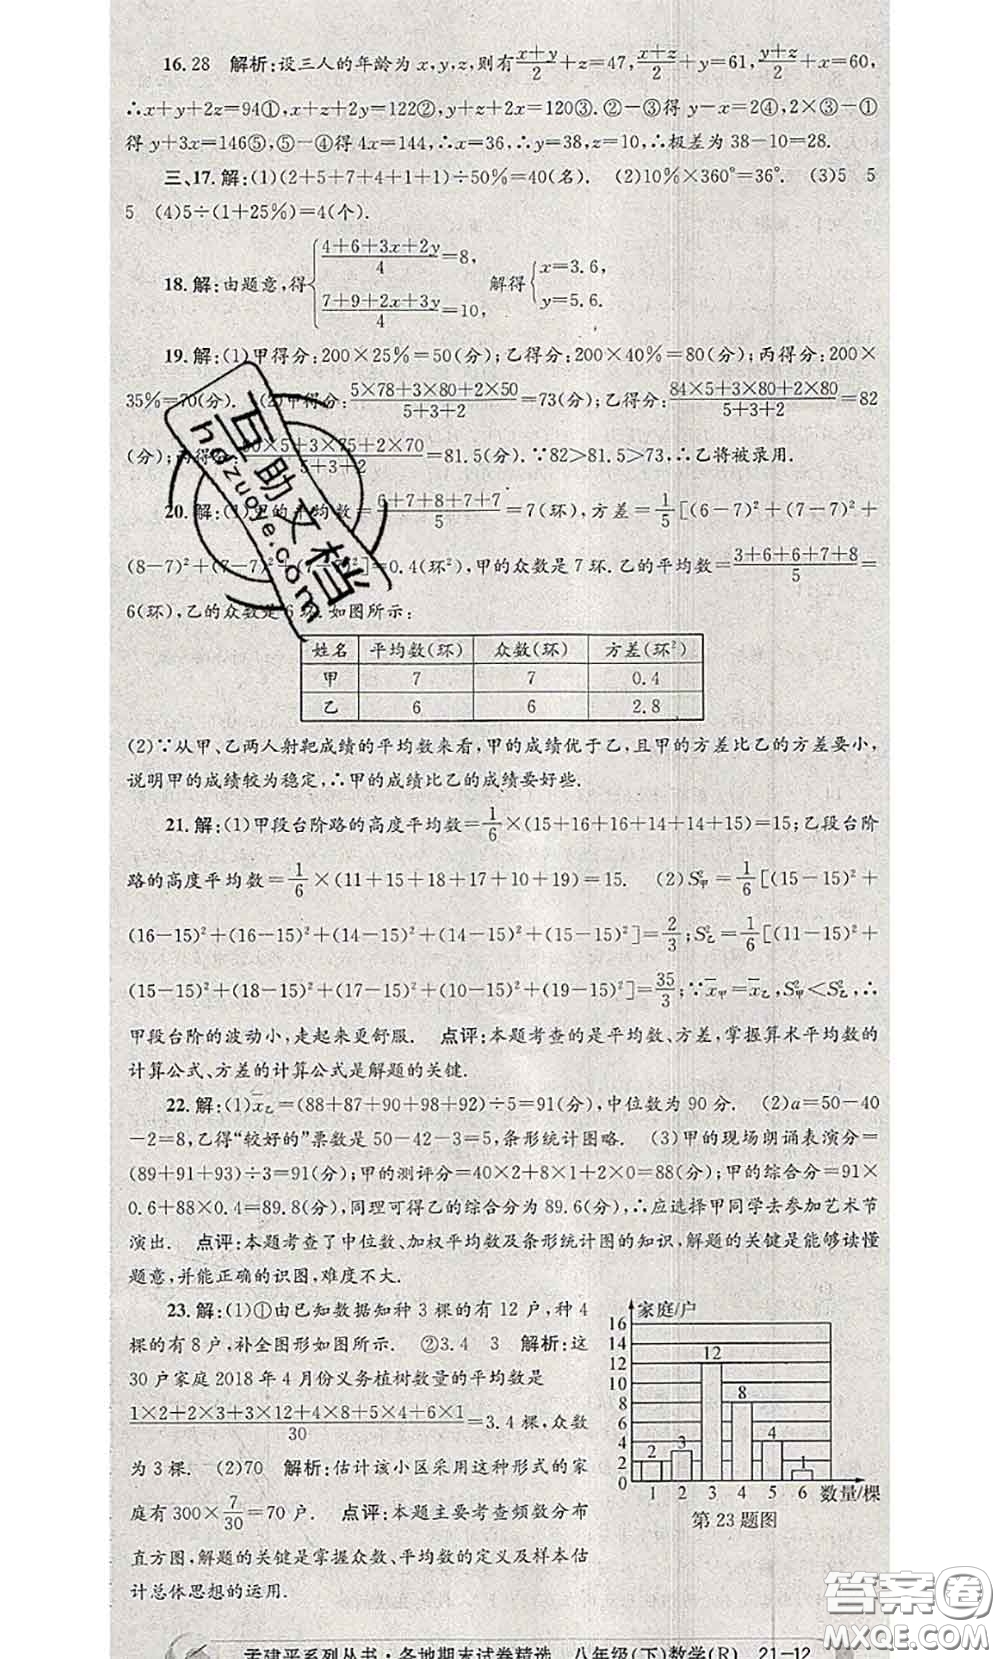 16.28 解析:设三人的年龄为 x,y,z,则有(x+y)/2+z=47,(x+z)/2+y=61,(y+z)/2+x=60,
∴x+y+2z=94①,x+z+2y=122②,y+z+2x=120③.②-③得 y-x=2④,2×③-①
得 y+3x=146⑤,⑤-④得 4x=144,∴x=36,∴y=38,z=10,∴极差为 38-10=28.
三、17.解:(1)(2+5+7+4+1+1)÷50%=40(名). (2)10%×360°=36°. (3)5 5
5 (4)5÷(1+25%)=4(个).
18.解:由题意,得{(4+6+3x+2y)/4=8, (7+9+2x+3y)/4=10, 解得{x=3.6, y=5.6.
19.解:(1)甲得分:200×25%=50(分);乙得分:200×40%=80(分);丙得分:200×
35%=70(分). (2)甲得分:(5×78+3×80+2×50)/(5+3+2)=73(分);乙得分:(84×5+3×80+2×80)/(5+3+2)=82
(分);丙得分:×5+3×75+2×70)/(5+3+2)=81.5(分).∵82>81.5>73,∴乙将被录用.
20.解:(1)甲的平均数=(6+7+8+7+7)/5=7(环),方差=1/5[(6-7)²+(7-7)²+
(8-7)²+(7-7)²+(7-7)²]=0.4(环²),甲的众数是 7 环.乙的平均数=(3+6+6+7+8)/5=
6(环),乙的众数是 6 环.如图所示:
姓名 平均数(环) 众数(环) 方差(环²)
甲 7 7 0.4
乙 6 6 2.8
(2)∵从甲、乙两人射靶成绩的平均数来看,甲的成绩优于乙,且甲的方差比乙的方差要小,
说明甲的成绩较为稳定,∴甲的成绩比乙的成绩要好些.
21.解:(1)甲段台阶路的高度平均数=1/6×(15+16+16+14+14+15)=15;乙段台阶
路的高度平均数=1/6×(11+15+18+17+10+19)=15. (2)S²甲=1/6[(15-15)²+
(16-15)²+(16-15)²+(14-15)²+(14-15)²+(15-15)²]=2/3;S²乙=1/6[(11-15)²+
(15-15)²+(18-15)²+(17-15)²+(10-15)²+(19-15)²]=35/3;∵x̄甲=x̄乙,S²甲<S²乙,∴
甲段台阶的波动小,走起来更舒服. 点评:本题考查的是平均数、方差,掌握算术平均数的
计算公式、方差的计算公式是解题的关键.
22.解:(1)x̄乙=(88+87+90+98+92)÷5=91(分),中位数为 90 分. (2)a=50-40
-2=8,乙得“较好的”票数是 50-42-3=5,条形统计图略. (3)甲的现场朗诵表演分=
(89+91+93)÷3=91(分);甲的测评分=40×2+8×1+2×0=88(分);甲的综合分=91×
0.6+88×0.4=89.8(分),同理可得乙的综合分为 89.6(分),∴应选择甲同学去参加艺术节
演出. 点评:本题考查了中位数、加权平均数及条形统计图的知识,解题的关键是能够读懂
题意,并能正确的识图,难度不大.
23.解:(1)①由已知数据知种 3 棵的有 12 户,种 4
棵的有 8 户,补全图形如图所示. ②3.4 3 解析:这
30 户家庭 2018 年 4 月份义务植树数量的平均数是
(1×2+2×3+3×12+4×8+5×4+6×1)/30=3.4 棵,众数
为 3 棵. (2)70 解析:估计该小区采用这种形式的家
庭有 300×7/30=70 户. 点评:本题主要考查频数分布
直方图,解题的关键是掌握众数、平均数的定义及样本估
计总体思想的运用.
家庭/户
16
14
12
10
8
6
4
2
0
2 3 12 8 4 1
1 2 3 4 5 6 数量/棵
第 23 题图
孟建平系列丛书·各地期末试卷精选 八年级(下)数学(R) 21-12
互助文档
hdzuoye.com
答案圈
MXQE.COM